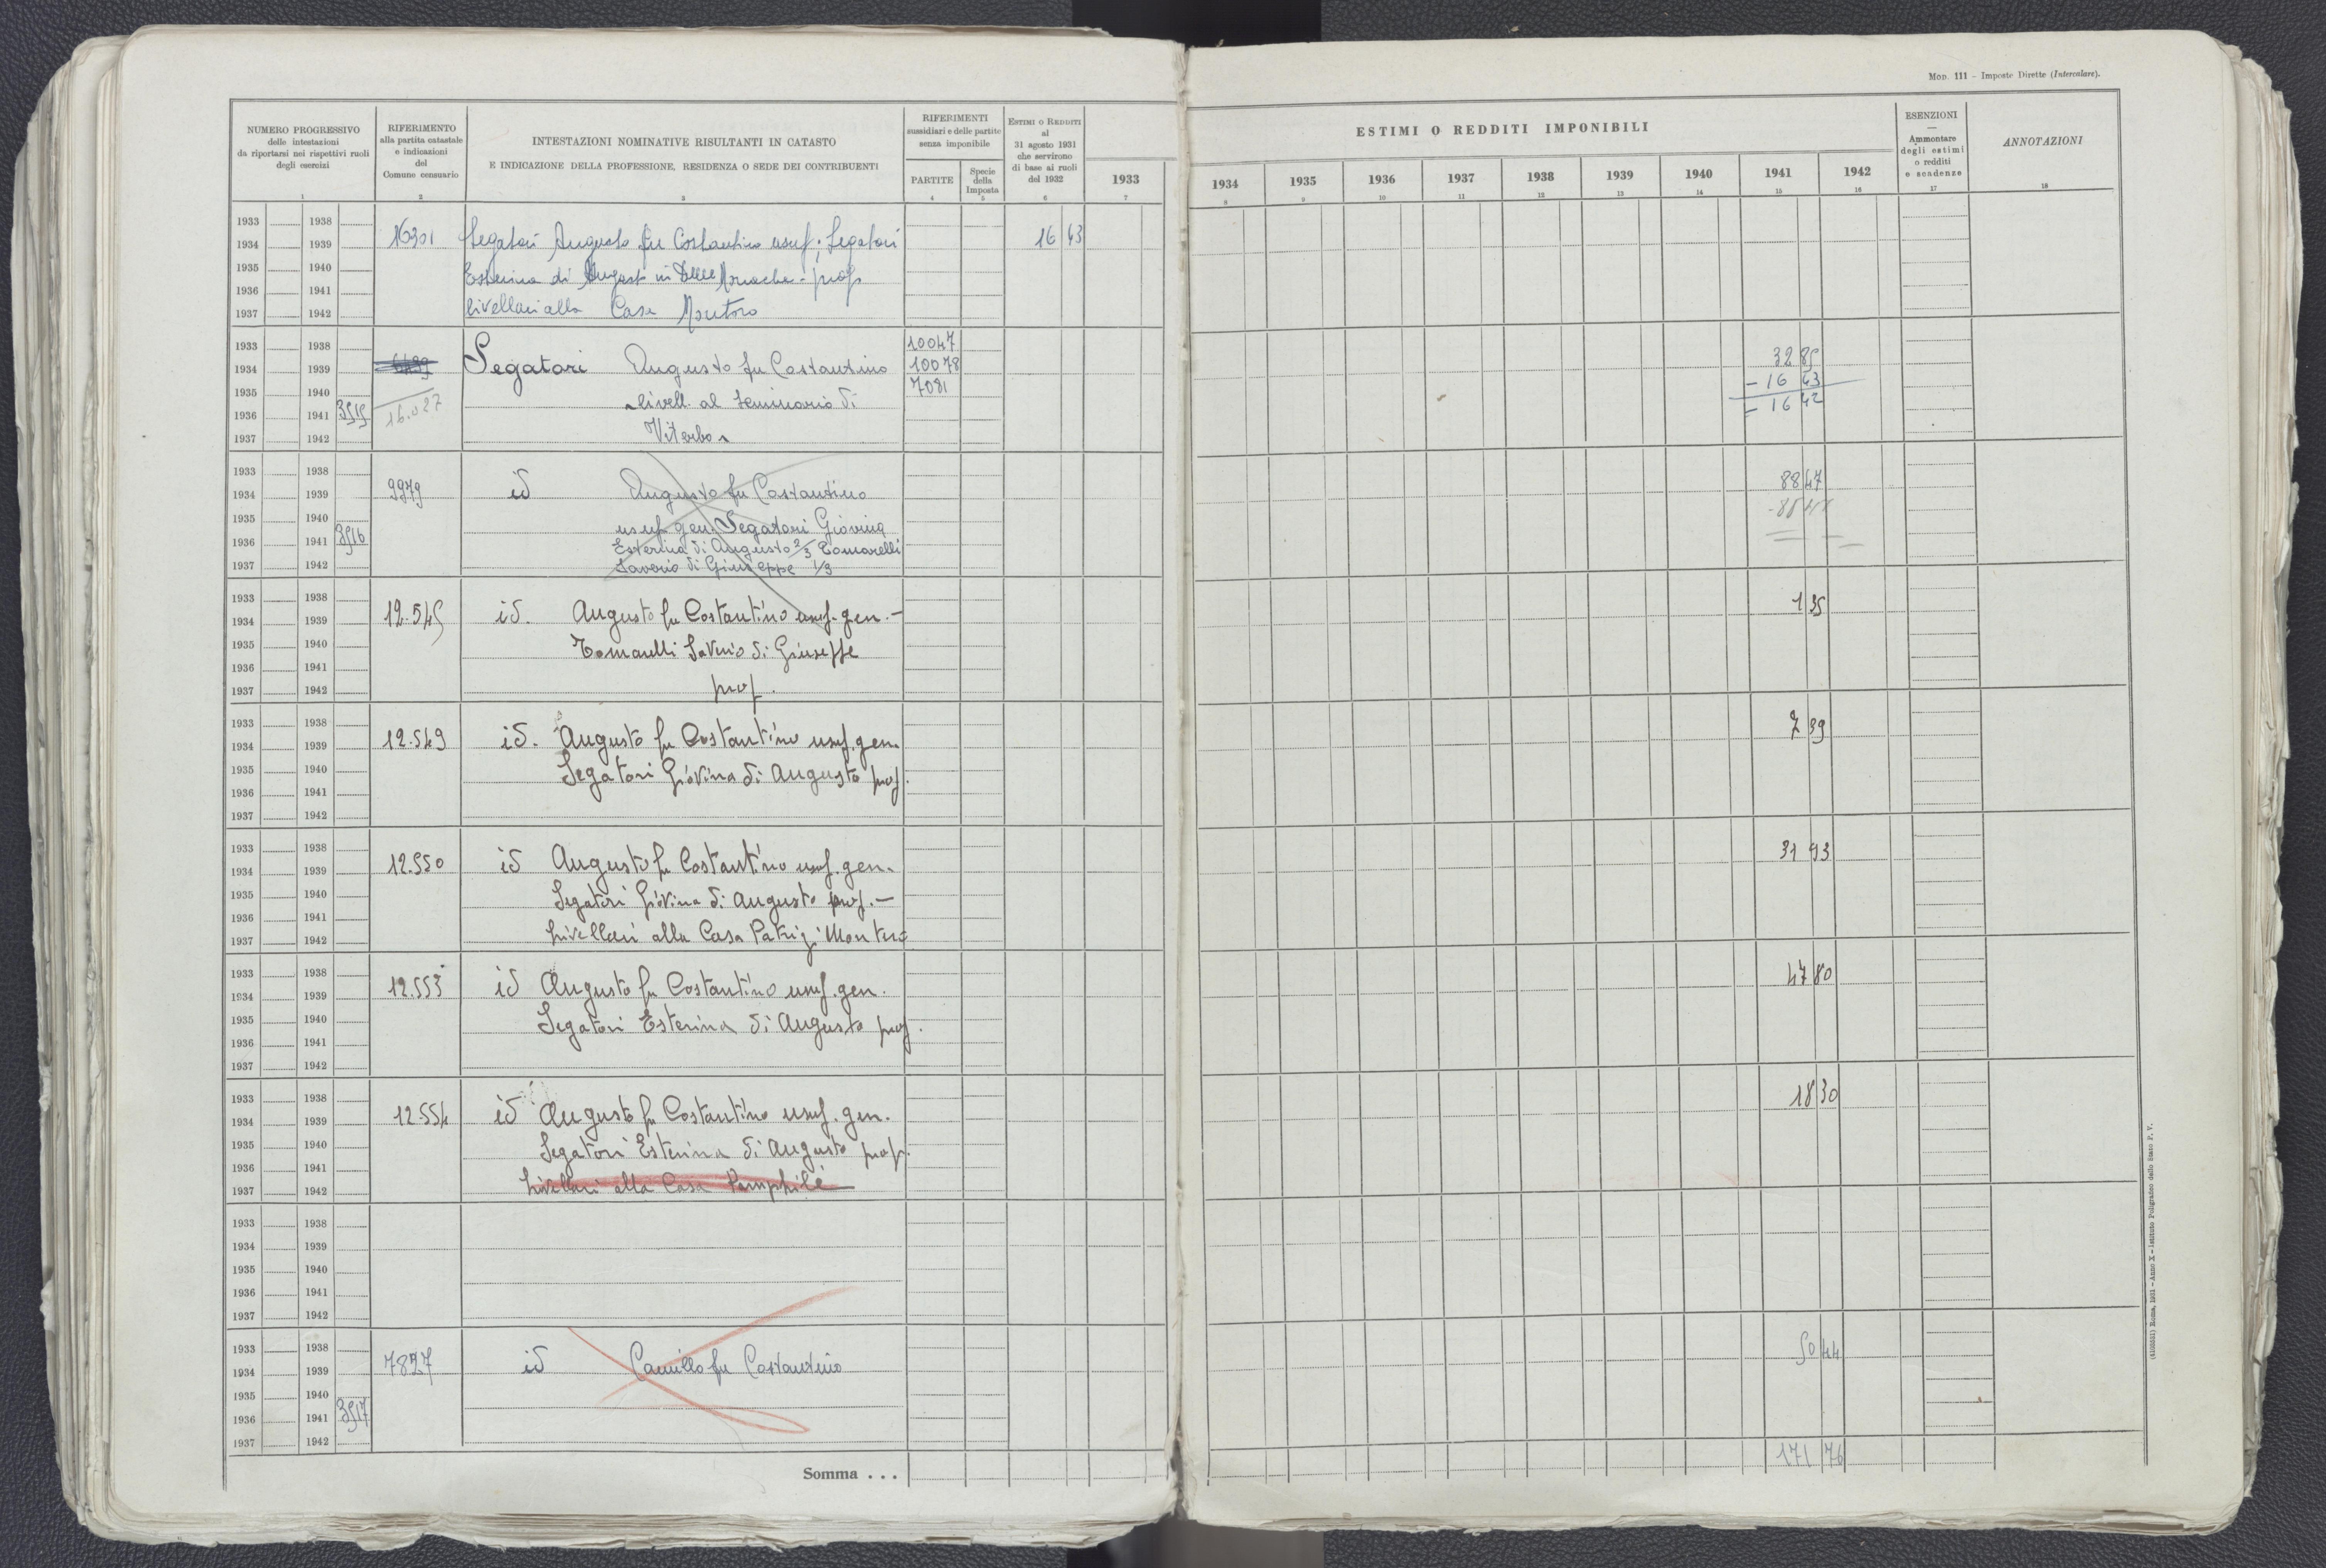 Mod. 111 – Imposte Dirette (Intercalare).
NUMERO PROGRESSIVO
delle intestazioni
da riportarsi nei rispettivi ruoli
degli esercizi
RIFERIMENTO
alla partita catastale
e indicazioni
del
Comune censuario
INTESTAZIONI NOMINATIVE RISULTANTI IN CATASTO
E INDICAZIONE DELLA PROFESSIONE, RESIDENZA O SEDE DEI CONTRIBUENTI
RIFERIMENTI
sussidiari e delle partite
senza imponibile
PARTITE
Specie
della
Imposta
ESTIMI O REDDITI
al
31 agosto 1931
che servirono
di base ai ruoli
del 1932
ESTIMI O REDDITI IMPONIBILI
1933 1934 1935 1936 1937 1938 1939 1940 1941 1942
ESENZIONI
—
Ammontare
degli estimi
o redditi
e scadenze
ANNOTAZIONI
1 2 3 4 5 6 7 8 9 10 11 12 13 14 15 16 17 18
1933 1938
1934 1939 16301 Segatori Augusto fu Costantino usuf; Segatori 16 43
1935 1940 Esterina di August in Delle Monache - prop
1936 1941
1937 1942 livellari alla Casa Montoro
1933 1938 10047
1934 1939 Segatori Augusto fu Costantino 10078 32 85
1935 1940 7081 - 16 43
1936 1941 3515 16.027 livell. al Seminario di - 16 42
1937 1942 Viterbo
1933 1938
1934 1939 9979 id Augusto fu Costantino 88 47
1935 1940 usuf gen Segatori Giovina
1936 1941 3516 Esterina di Augusto 2/3 Tomarelli
1937 1942 Saverio di Giuseppe 1/3
1933 1938
1934 1939 12.545 id. Augusto fu Costantino usuf. gen. – 1 35
1935 1940 Tomarelli Saverio di Giuseppe
1936 1941
1937 1942 prop.
1933 1938
1934 1939 12.549 id. Augusto fu Costantino usuf. gen. 7 39
1935 1940 Segatori Giovina di Augusto prop.
1936 1941
1937 1942
1933 1938
1934 1939 12.550 id Augusto fu Costantino usuf. gen. 31 93
1935 1940 Segatori Giovina di Augusto prop. –
1936 1941
1937 1942 Livellari alla Casa Patrizi Montoro
1933 1938
1934 1939 12.553 id Augusto fu Costantino usuf. gen. 47 80
1935 1940 Segatori Esterina di Augusto prop.
1936 1941
1937 1942
1933 1938
1934 1939 12554 id Augusto fu Costantino usuf. gen. 18 30
1935 1940 Segatori Esterina di Augusto prop.
1936 1941
1937 1942 Livellari alla Casa Pamphile
1933 1938
1934 1939
1935 1940
1936 1941
1937 1942
1933 1938
1934 1939 7827 id Camillo fu Costantino 50 44
1935 1940
1936 1941 3517
1937 1942
Somma . . . 171 76
(4103551) Roma, 1931 – Anno X – Istituto Poligrafico dello Stato P. V.